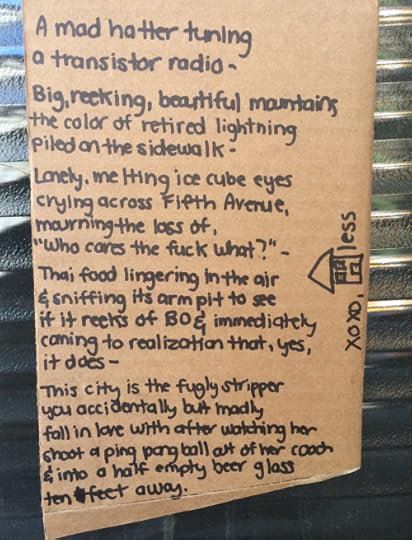 A mad hatter tuning
a transistor radio -
Big, reeking, beautiful mountains
the color of retired lightning
piled on the sidewalk -
Lonely, melting ice cube eyes
crying across Fifth Avenue,
mourning the loss of,
"Who cares the fuck what?" -
Thai food lingering in the air
& sniffing its arm pit to see
if it reeks of BO & immediately
coming to realization that, yes,
it does -
This city is the fugly stripper
you accidentally but madly
fall in love with after watching her
shoot a ping pong ball out of her cooch
& into a half empty beer glass
ten feet away.
XOXO, less